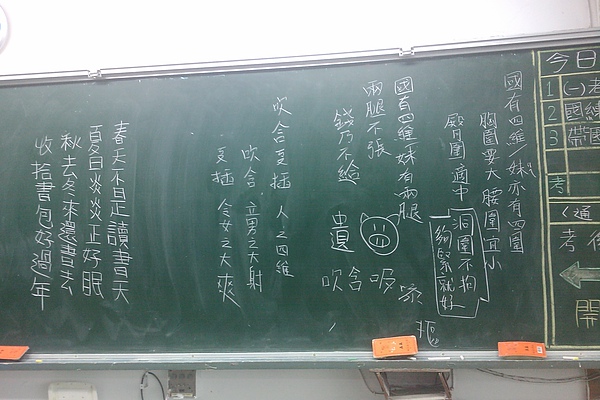 今日
1 (一)
2 國
3 帶
考
(通
考
開
國有四維 妹亦有四圍
胸圍要大 腰圍宜小
臀圍適中
洞圍不拘
夠緊就好
國有四維 妹有兩腿
兩腿不張
錢乃不給
遺
吹含吸
摳
吹含支插 人之四維
吹含 童男之大射
支插 令女之大爽
春天不是讀書天
夏日炎炎正好眠
秋去冬來還書去
收拾書包好過年